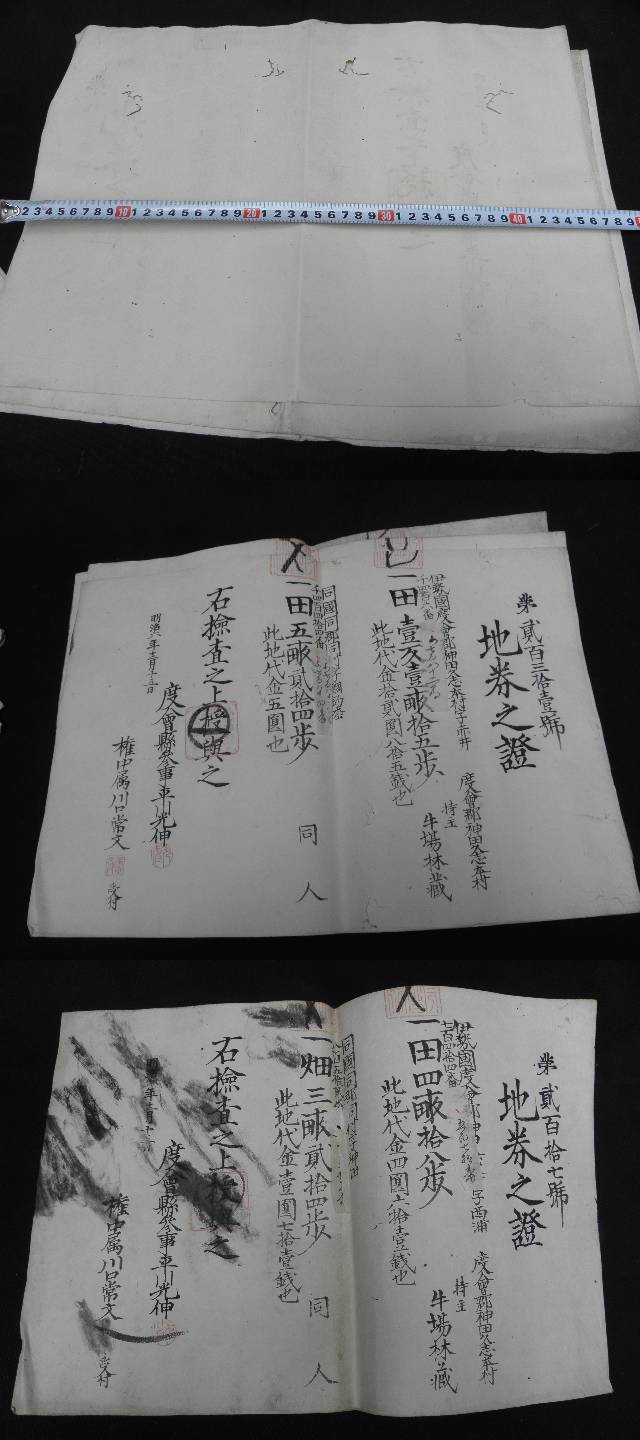 2 3 4 5 6 7 8 9 10 1 2 3 4 5 6 7 8 9 20 1 2 3 4 5 6 7 8 9 30 1 2 3 4 5 6 7 8 9 40 1 2 3 4 5 6 7 8 9
第貳百三拾壹號
地券之證
度會郡神田久志本村
持主
牛場林藏
伊勢國度會郡神田久志本村字
一田壹反壹畝拾五歩
此地代金拾貳圓八拾五錢也
同國同郡同村字
一田五畝貳拾四歩
此地代金五圓也
同人
右撿査之上授與之
明治六年
度會縣參事平川光伸
權中属川口常文
第貳百拾七號
地券之證
度會郡神田久志本村
持主
牛場林藏
伊勢國度會郡神田 字西浦
七百四拾四番
一田四畝拾八歩
此地代金四圓六拾壹錢也
同國同郡同村字
一畑三畝貳拾四歩
此地代金壹圓七拾壹錢也
同人
右撿査之上授與之
度會縣參事平川光伸
權中属川口常文